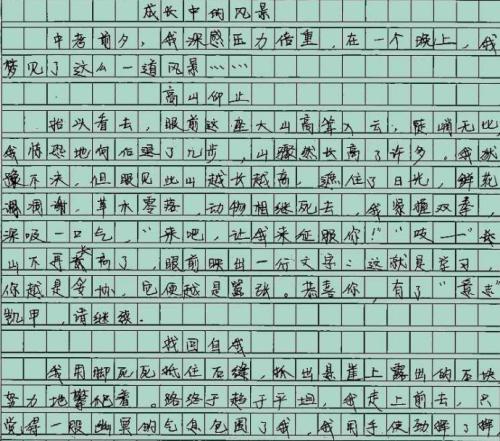 成长中的风景
中考前夕，我深感压力倍重，在一个晚上，我
梦见了这么一道风景……
高山仰止
抬头看去，眼前这座大山高耸入云，陡峭无比
我惊恐地向后退了几步，山骤然长高了许多。我犹
豫不决，但眼见此山越长越高，遮住了日光，鲜花
凋谢，草木零落，动物相继死去，我紧握双拳，
深吸一口气，“来吧，让我来征服你！”“吱——”
山不再长高了，眼前映出一行文字：这就是学习，
你越是害怕，它便越是嚣张。恭喜你，有了“意志”
凯甲，请继续.
找回自我
我用脚死死抵住石缝，抓出悬崖上露出的石块
努力地攀爬着。路终于趋于平坦，我走上前去，只
觉得一股幽冥的气息包围了我，我用手使劲挥了挥